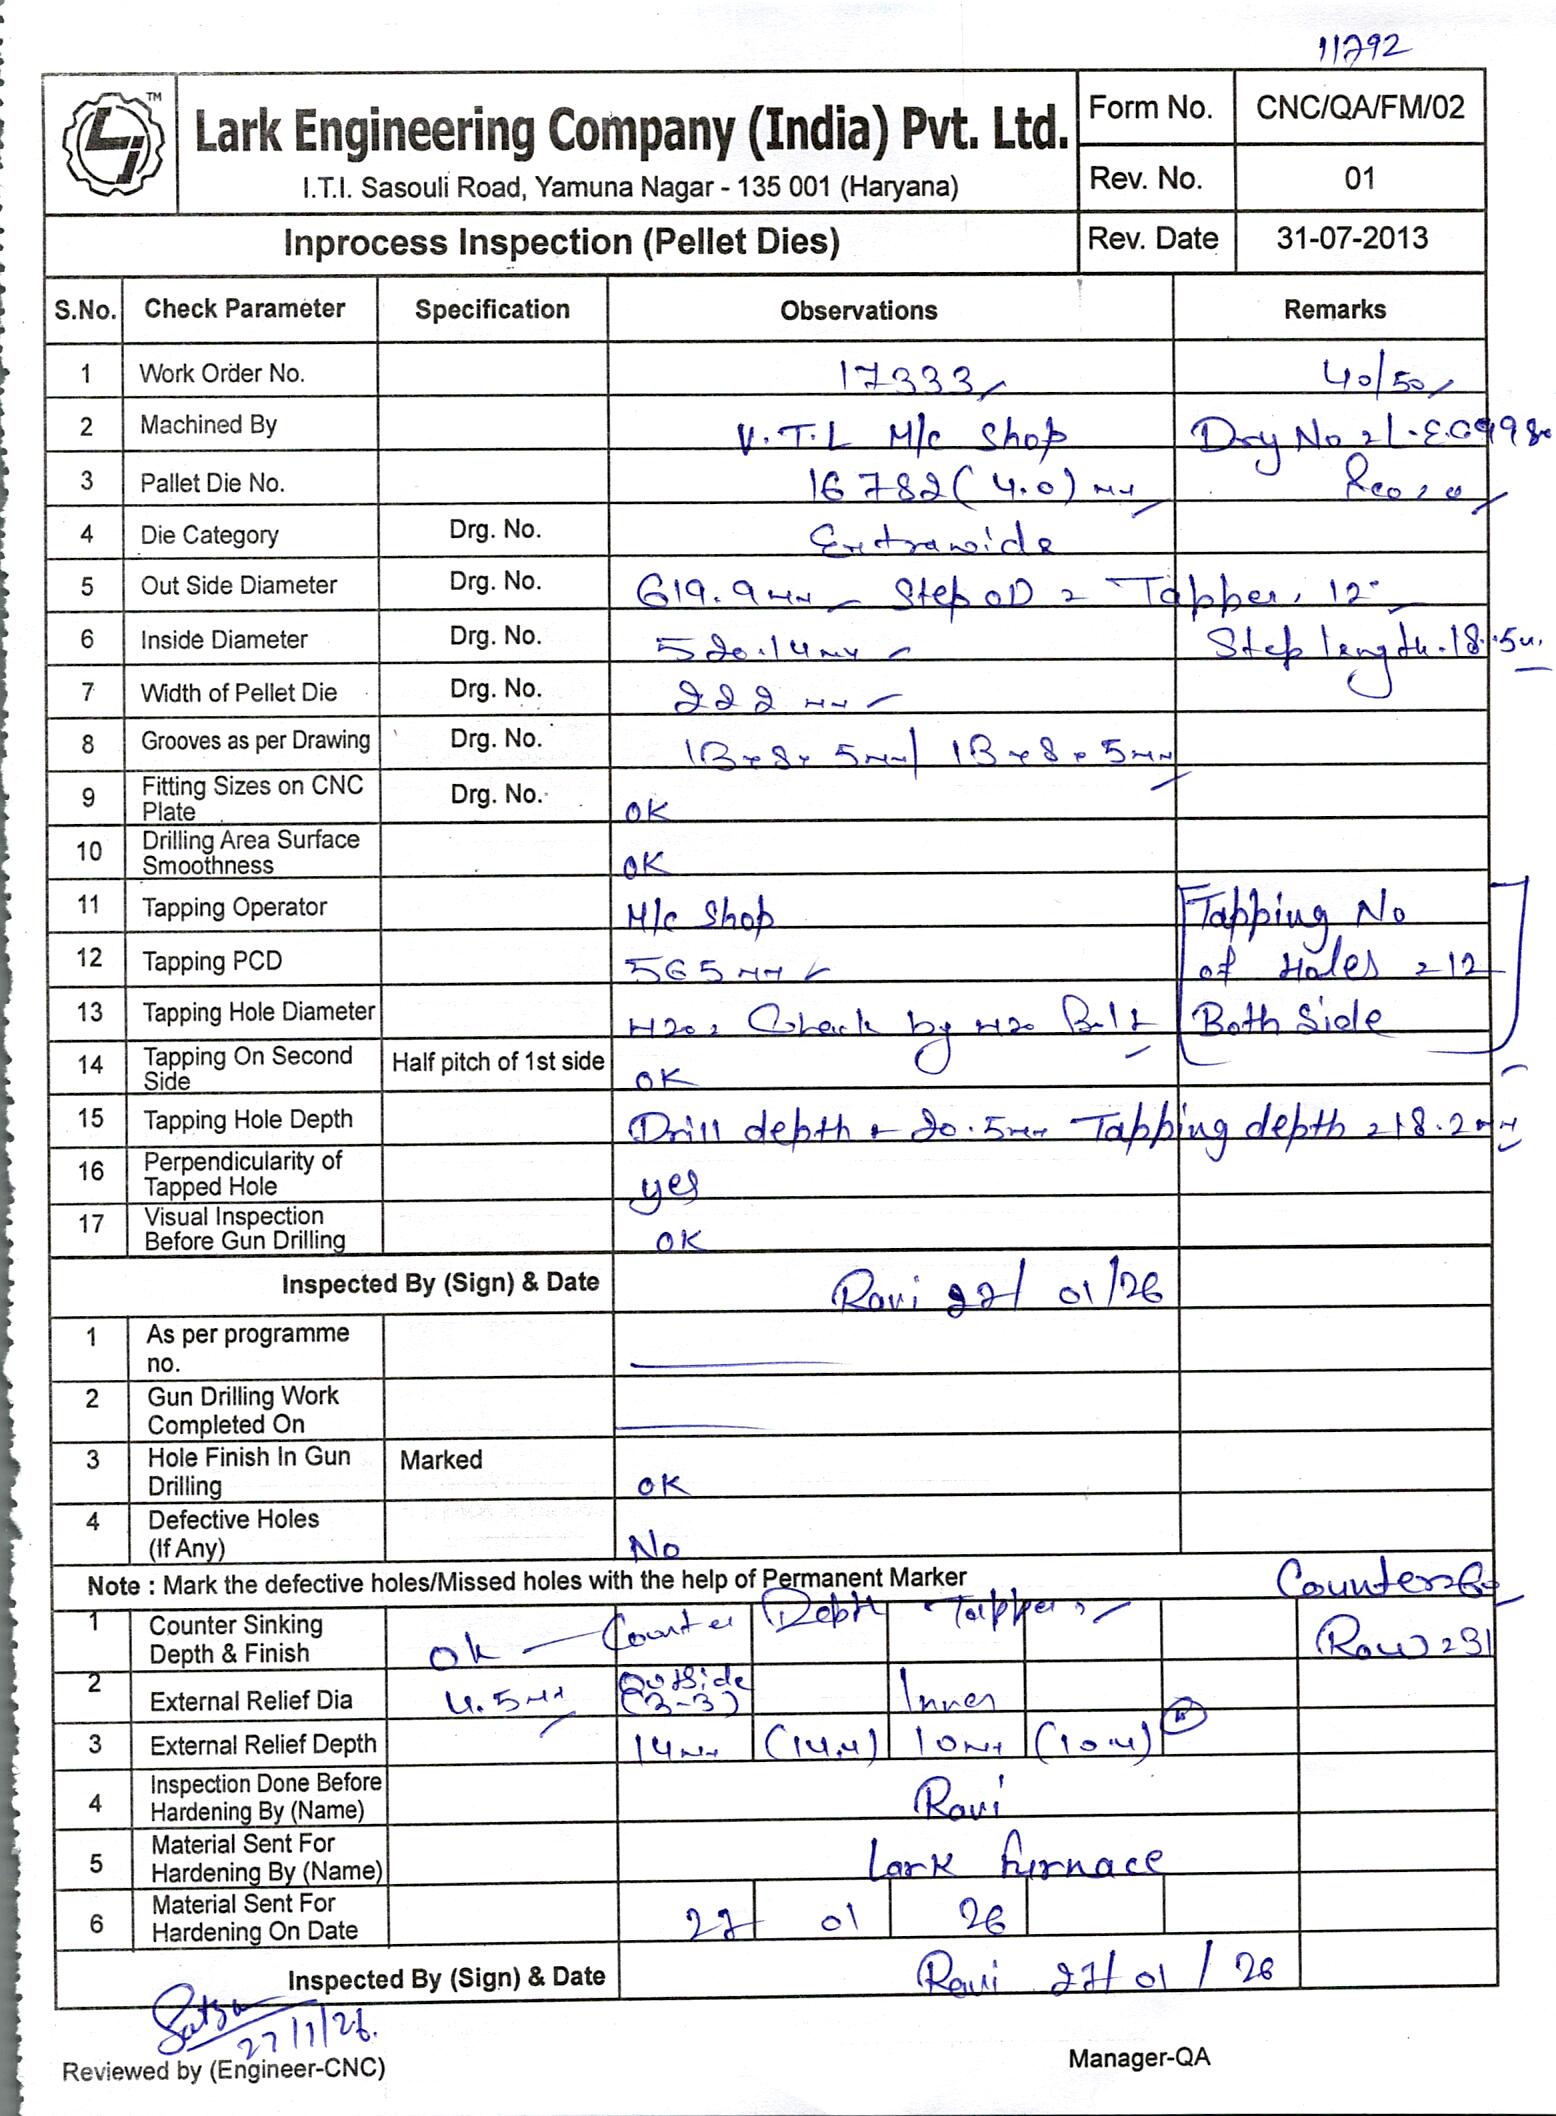 11792
TM
Lark Engineering Company (India) Pvt. Ltd.
I.T.I. Sasouli Road, Yamuna Nagar - 135 001 (Haryana)
Form No. CNC/QA/FM/02
Rev. No. 01
Inprocess Inspection (Pellet Dies) Rev. Date 31-07-2013
S.No. Check Parameter Specification Observations Remarks
1 Work Order No. 17333 40/50
2 Machined By V.T.L M/c Shop
3 Pallet Die No. 16782 (4.0) mm
4 Die Category Drg. No. Extrawide
5 Out Side Diameter Drg. No. 619.9mm - Step OD = Tapper, 12°
6 Inside Diameter Drg. No. 520.14mm Step length.18.5
7 Width of Pellet Die Drg. No. 222 mm
8 Grooves as per Drawing Drg. No. 13x8x5mm/ 13x8x5mm
9 Fitting Sizes on CNC Plate Drg. No. OK
10 Drilling Area Surface Smoothness OK
11 Tapping Operator M/c Shop Tapping No
12 Tapping PCD 565mm of Holes = 12
13 Tapping Hole Diameter M20, Check by M20 Bolt Both Side
14 Tapping On Second Side Half pitch of 1st side OK
15 Tapping Hole Depth Drill depth = 20.5mm Tapping depth = 18.2mm
16 Perpendicularity of Tapped Hole yes
17 Visual Inspection Before Gun Drilling OK
Inspected By (Sign) & Date Ravi 27/01/26
1 As per programme no.
2 Gun Drilling Work Completed On
3 Hole Finish In Gun Drilling Marked OK
4 Defective Holes (If Any) No
Note : Mark the defective holes/Missed holes with the help of Permanent Marker
1 Counter Sinking Depth & Finish Ok - Counter Depth Tapper Row = 31
2 External Relief Dia 4.5mm Outside (3-3) Inner
3 External Relief Depth 14mm (14.4) 10mm (10.4)
4 Inspection Done Before Hardening By (Name) Ravi
5 Material Sent For Hardening By (Name) Lark furnace
6 Material Sent For Hardening On Date 27 01 26
Inspected By (Sign) & Date Ravi 27/01/26
27/1/26.
Reviewed by (Engineer-CNC) Manager-QA